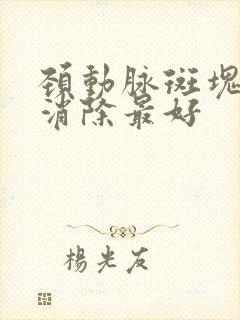 頚動脉斑塊
消除最好
楊光友